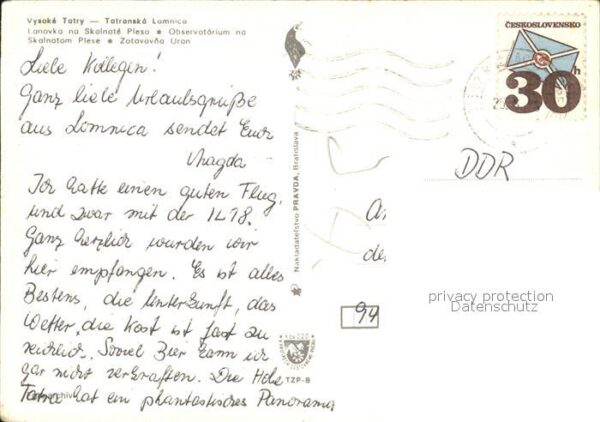 Vysoké Tatry — Tatranská Lomnica
Lanovka na Skalnaté Pleso ✱ Observatórium na
Skalnatom Plese ✱ Zotavovňa Urán
Liebe Kollegen!
Ganz liebe Urlaubsgrüße
aus Lomnica sendet Euch
Magda
Ich hatte einen guten Flug,
und zwar mit der IL 18.
Ganz herzlich wurden wir
hier empfangen. Es ist alles
Bestens, die Unterkunft, das
Wetter, die Kost ist fast zu
reichlich. Soviel Bier kann ich
gar nicht verkraften. Die Hohe
Tatra hat ein phantastisches Panorama
Nakladateľstvo PRAVDA, Bratislava
TZP-8
ČESKOSLOVENSKO
30h
DDR
de
94
privacy protection
Datenschutz